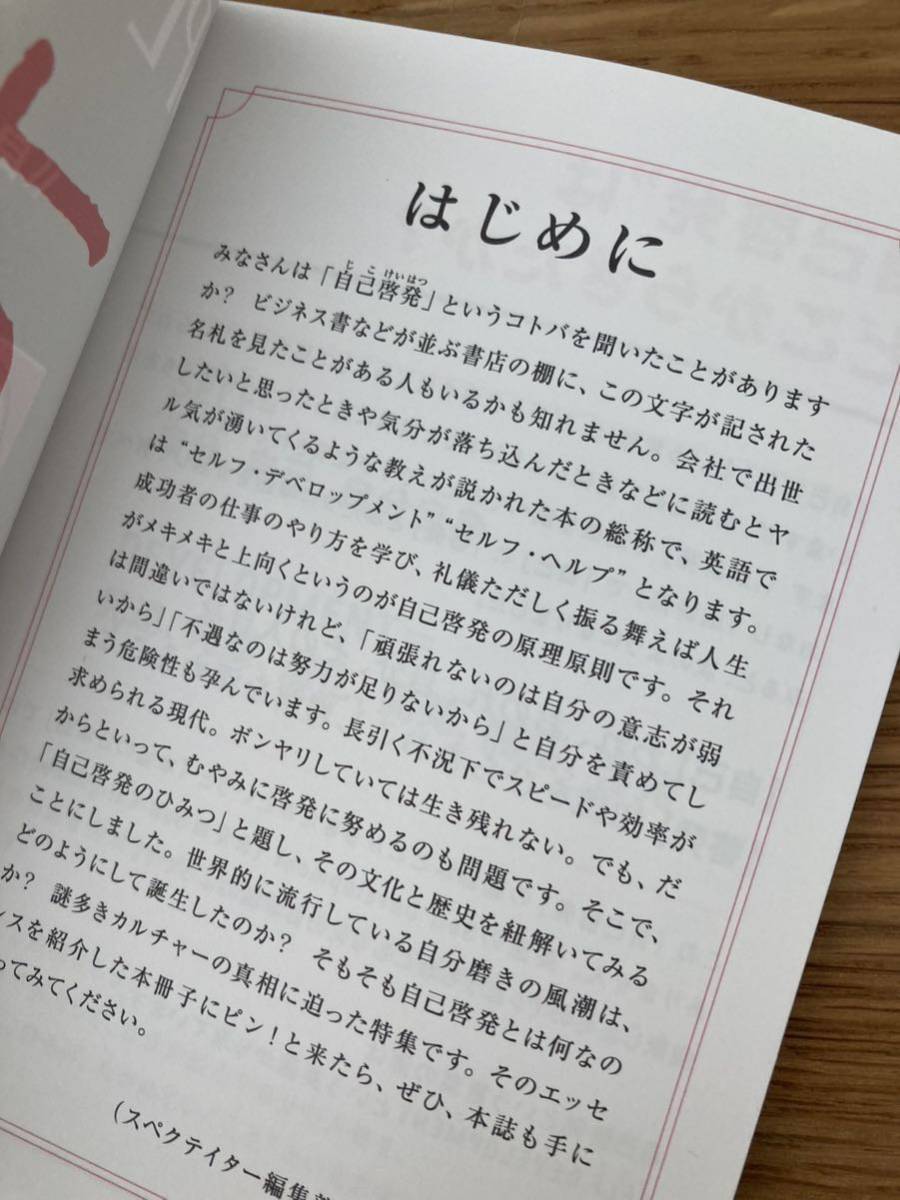 はじめに
みなさんは「自己啓発」というコトバを聞いたことがあります
か? ビジネス書などが並ぶ書店の棚に、この文字が記された
名札を見たことがある人もいるかも知れません。会社で出世
したいと思ったときや気分が落ち込んだときなどに読むとヤ
ル気が湧いてくるような教えが説かれた本の総称で、英語で
は“セルフ・デベロップメント”“セルフ・ヘルプ”となります。
成功者の仕事のやり方を学び、礼儀ただしく振る舞えば人生
がメキメキと上向くというのが自己啓発の原理原則です。それ
は間違いではないけれど、「頑張れないのは自分の意志が弱
いから」「不遇なのは努力が足りないから」と自分を責めてし
まう危険性も孕んでいます。長引く不況下でスピードや効率が
求められる現代。ボンヤリしていては生き残れない。でも、だ
からといって、むやみに啓発に努めるのも問題です。そこで、
「自己啓発のひみつ」と題し、その文化と歴史を紐解いてみる
ことにしました。世界的に流行している自分磨きの風潮は、
どのようにして誕生したのか? そもそも自己啓発とは何なの
か? 謎多きカルチャーの真相に迫った特集です。そのエッセ
ンスを紹介した本冊子にピン!と来たら、ぜひ、本誌も手に
ってみてください。
(スペクテイター編集